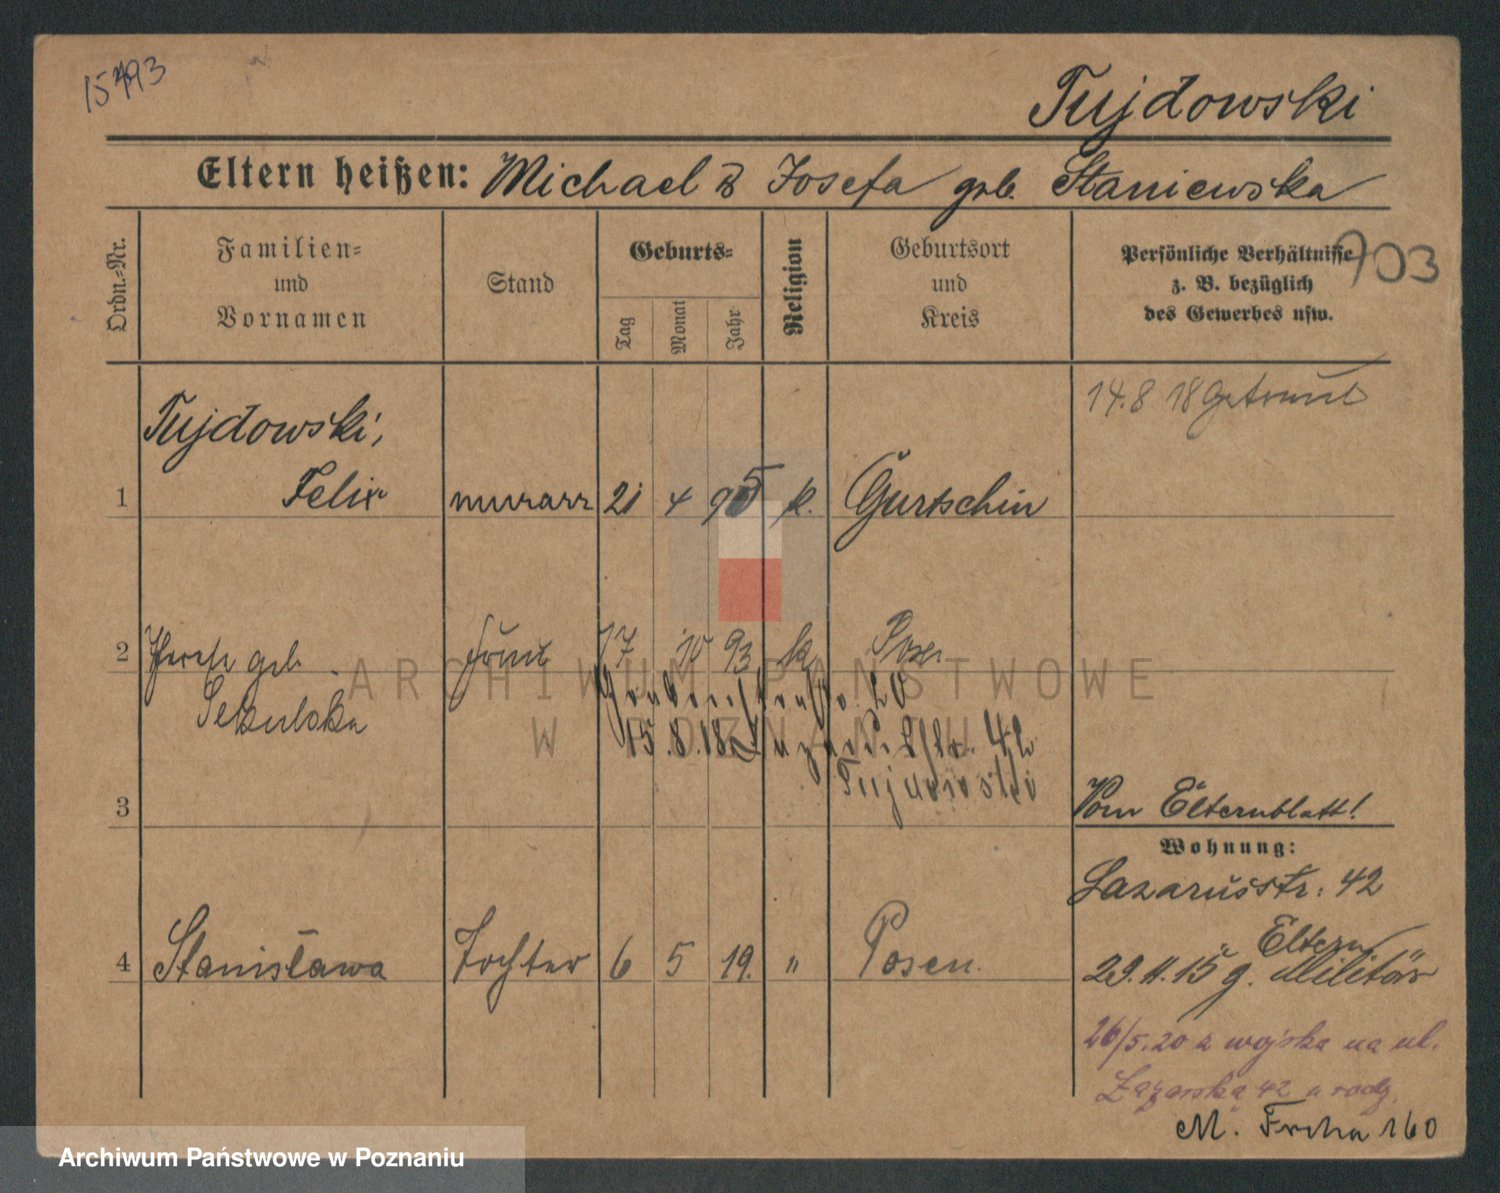 15793
Tujdowski
Eltern heißen: Michael & Josefa geb. Staniewska
Ordn.-Nr.
Familien- und Vornamen
Stand
Geburts-
Tag
Monat
Jahr
Religion
Geburtsort und Kreis
Persönliche Verhältnisse z. B. bezüglich des Gewerbes usw.
703
14.8 18 getraut
Tujdowski,
1 Felix murarz 21 4 95 k. Gurtschin
2 geb. Frau 17 10 93 k Posen
Sekulska
20
15.8.18 42
Tujdowski
3
Vom Elternblatt!
Wohnung:
Lazarusstr. 42
Eltern
4 Stanisława Tochter 6 5 19. " Posen.
29.11.15 g. Militär
26/5.20 z wojska na ul.
Łazarska 42 u rodz.
M. Focha 160
ARCHIWUM PAŃSTWOWE
W POZNANIU
Archiwum Państwowe w Poznaniu